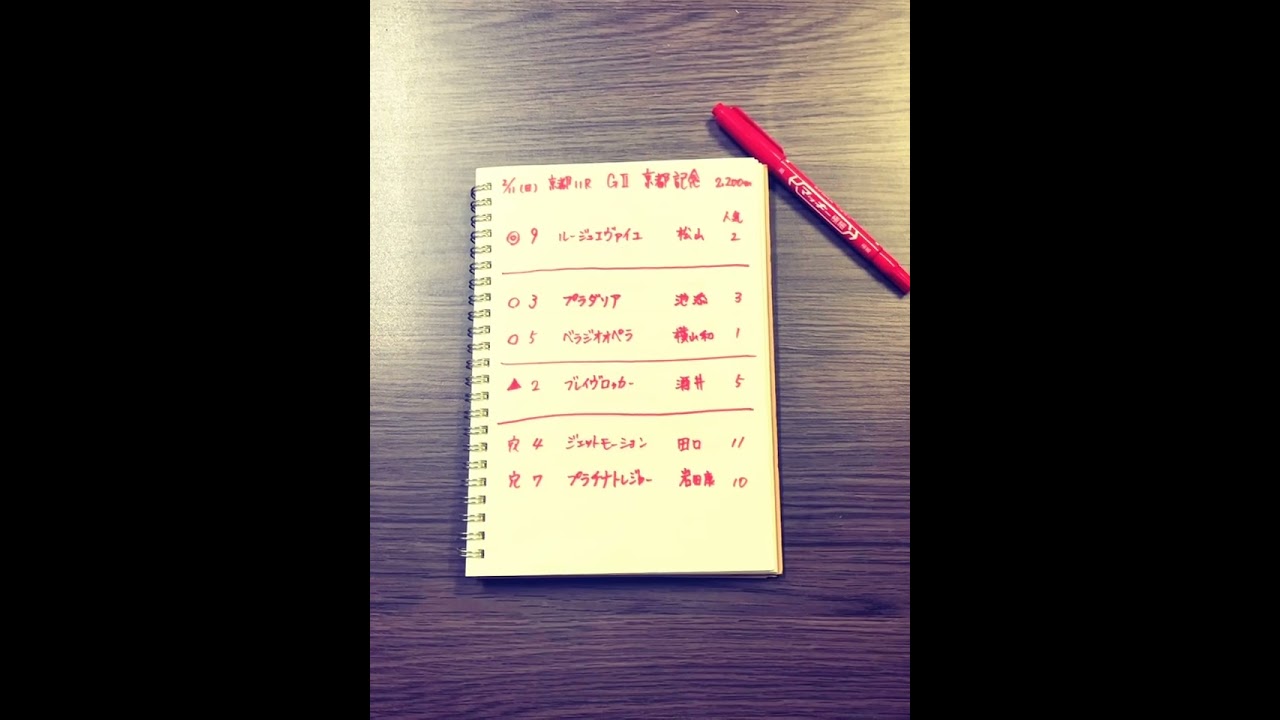 2/11(日) 京都11R GⅡ 京都記念 2,200m
人気
◎ 9 ルージュエヴァイユ 松山 2
○ 3 プラダリア 池添 3
○ 5 ベラジオオペラ 横山和 1
▲ 2 ブレイヴロッカー 酒井 5
穴 4 ジェットモーション 田口 11
穴 7 プラチナトレジャー 岩田康 10
マッキー極細